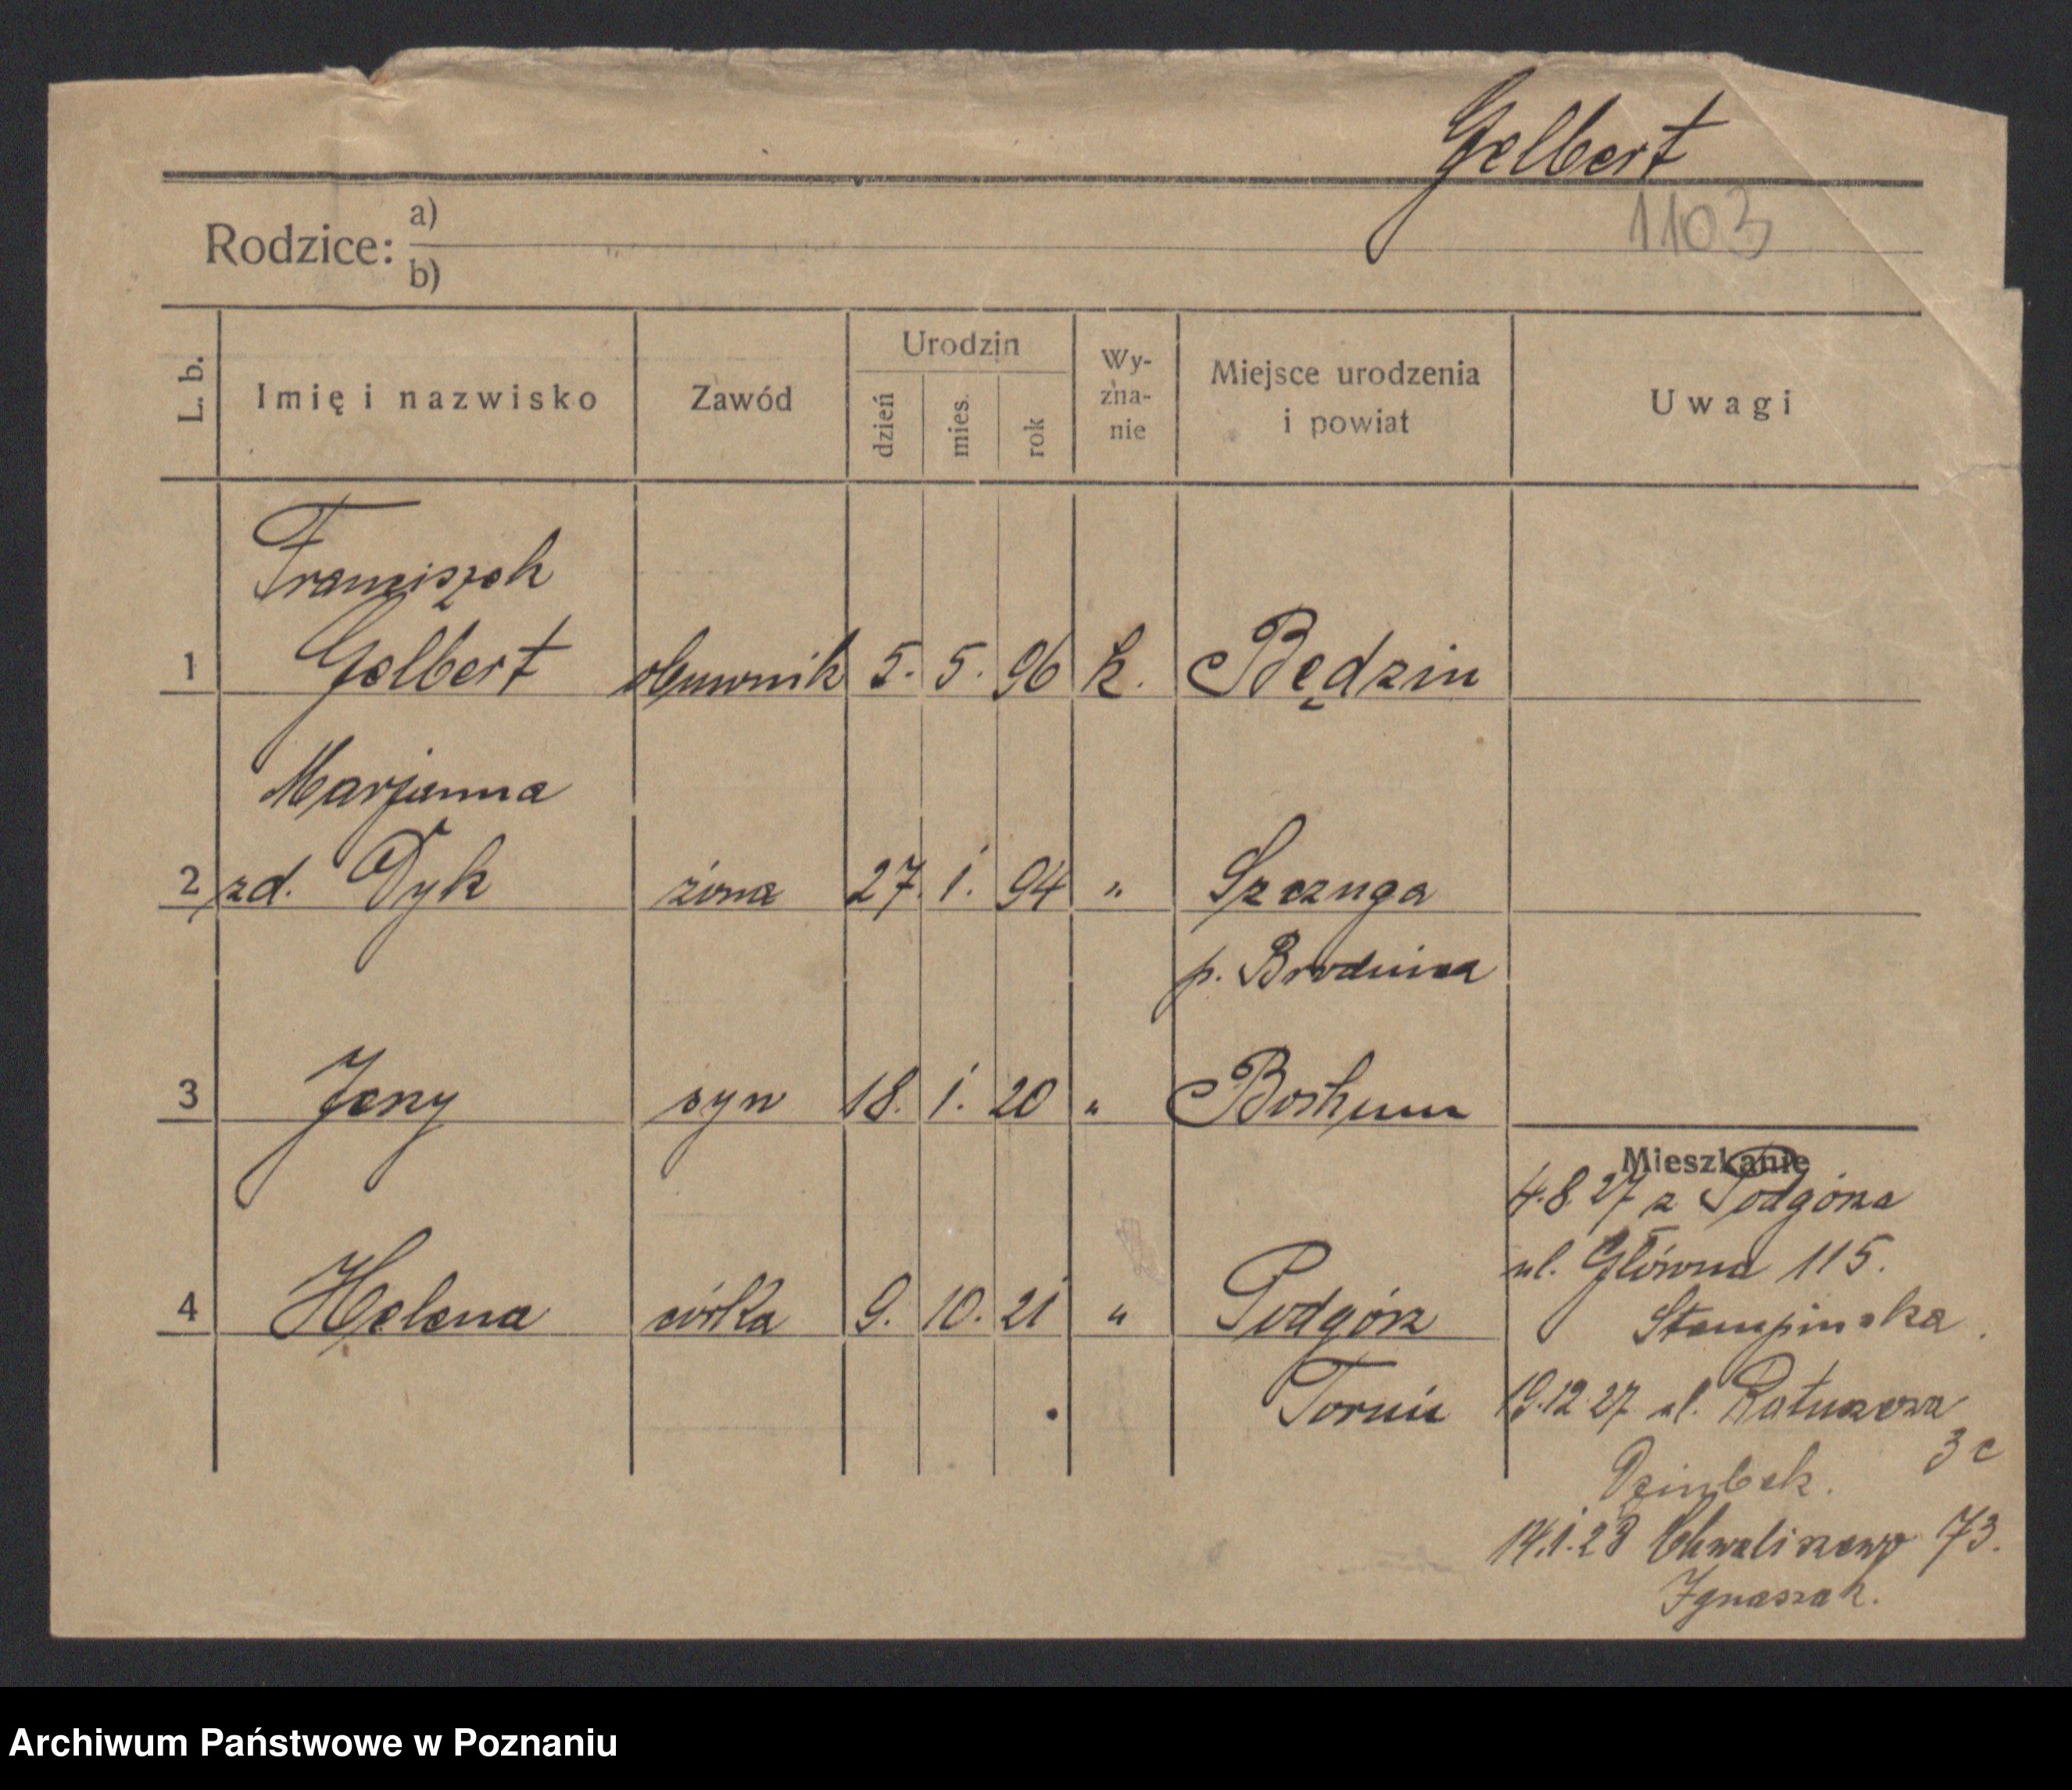 Gelbert
1103
Rodzice: a)
b)
L. b.
Imię i nazwisko
Zawód
Urodzin
dzień
mies.
rok
Wy-
zna-
nie
Miejsce urodzenia
i powiat
Uwagi
Franciszek
1 Gelbert obuwnik 5. 5. 96 k. Będzin
Marjanna
2 zd. Dyk żona 27. 1. 94 " Szczuga
p. Brodnica
3 Jerzy syn 18. 1. 20 " Bochum
Mieszkanie
4.8.27 z Podgórza
ul. Główna 115.
4 Helena córka 9. 10. 21 " Podgórz
Stempinska.
Toruń
19.12.27 ul. Ratuszowa
3c
14.1.28 Chwaliszewo 73.
Ignaszak.
Archiwum Państwowe w Poznaniu